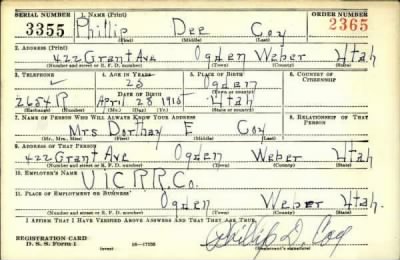 SERIAL NUMBER 1. NAME (Print) ORDER NUMBER
3355 Phillip Dee Coy 2365
(First) (Middle) (Last)
2. ADDRESS (Print)
422 Grant Ave Ogden Weber Utah
(Number and street or R. F. D. number) (Town) (County) (State)
3. TELEPHONE 4. AGE IN YEARS 5. PLACE OF BIRTH 6. COUNTRY OF CITIZENSHIP
Ogden
(Town or county)
2684 R April 28 Utah
(Exchange) (Number) (Mo.) (Day) (Yr.) (State or country)
7. NAME OF PERSON WHO WILL ALWAYS KNOW YOUR ADDRESS 8. RELATIONSHIP OF THAT PERSON
Mrs Dorthay E Coy
(Mr., Mrs., Miss) (First) (Middle) (Last)
9. ADDRESS OF THAT PERSON
422 Grant Ave Ogden Weber Utah
(Number and street or R. F. D. number) (Town) (County) (State)
10. EMPLOYER'S NAME
R.R. Co.
11. PLACE OF EMPLOYMENT OR BUSINESS
Ogden Weber Utah.
(Number and street or R. F. D. number) (Town) (County) (State)
I AFFIRM THAT I HAVE VERIFIED ABOVE ANSWERS AND THAT THEY ARE TRUE.
REGISTRATION CARD Phillip D. Coy
D. S. S. Form 1 (Registrant's signature)